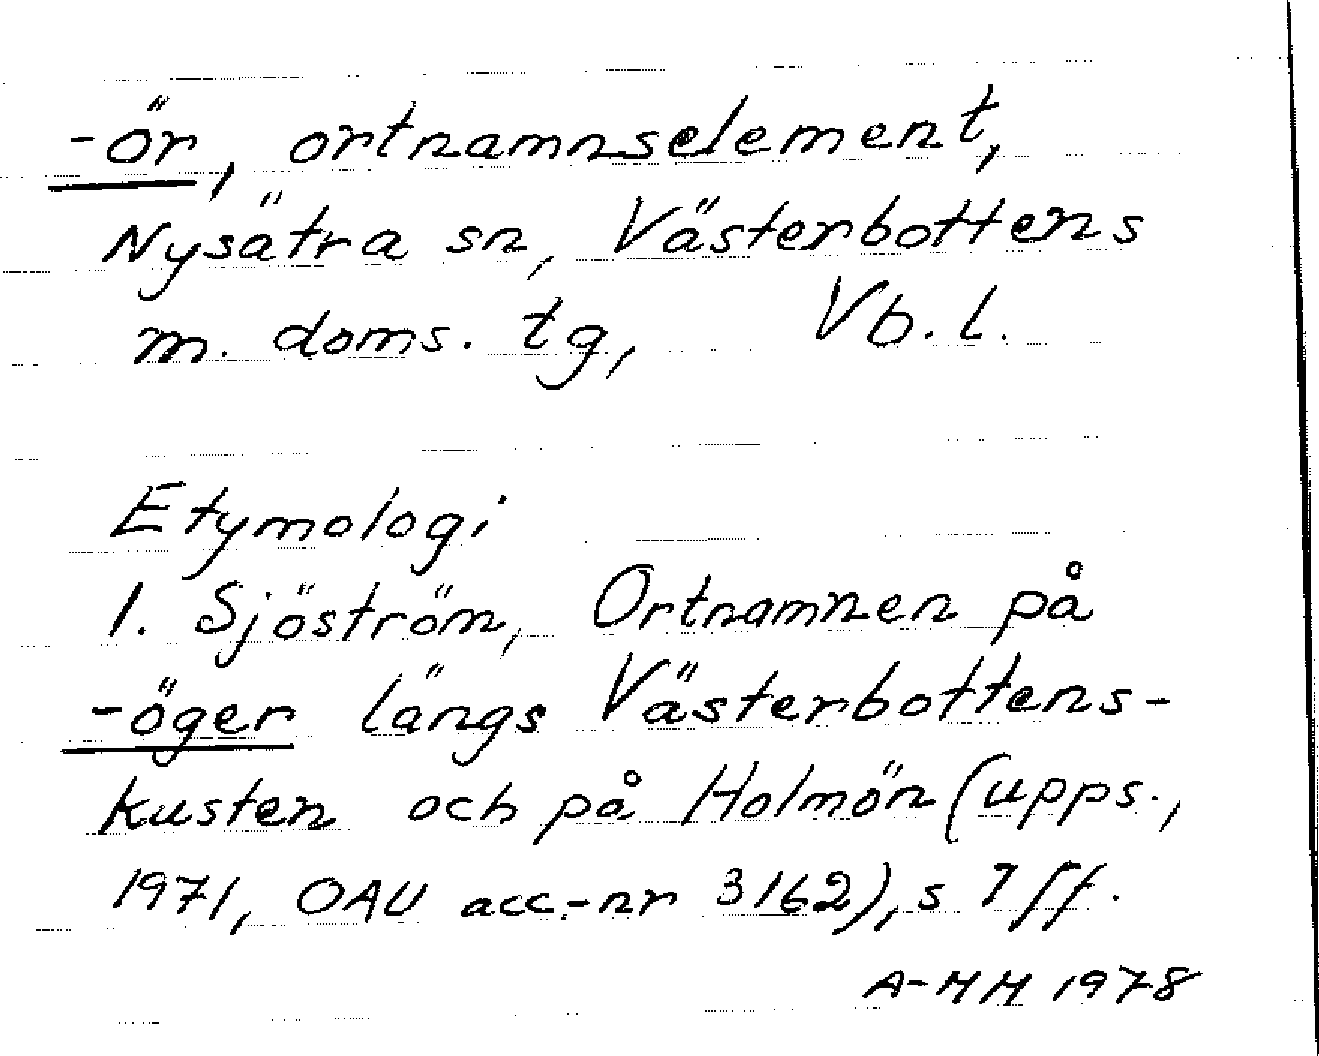 -ör, ortnamnselement,
Nysätra sn, Västerbottens
m. doms. tg, Vb. l.
Etymologi
1. Sjöström, Ortnamnen på
-öger längs Västerbottens-
kusten och på Holmön (upps.,
1971, OAU acc.-nr 3162), s 7 ff.
A-MM 1978